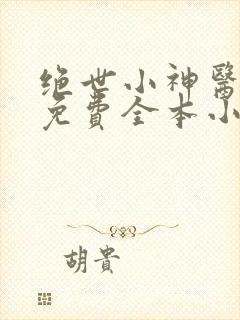 绝世小神醫
免費全本小
胡貴